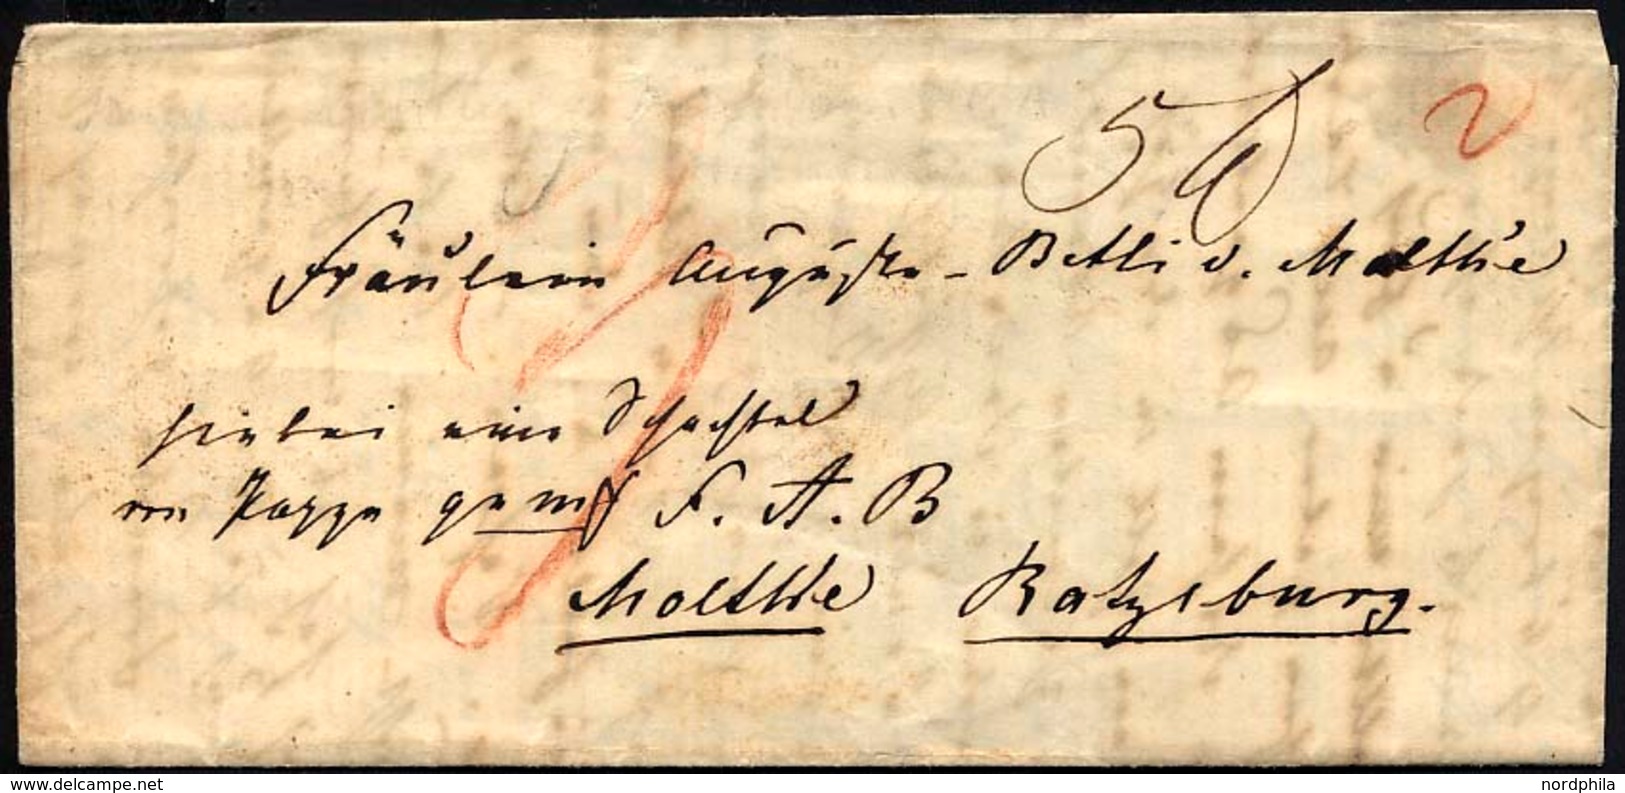 56 2
Fräulein Auguste-Betli v. Moltke
hiebei eine Schachtel
von Pappe gemß F. A. B
Moltke Ratzeburg.
© by www.delcampe.net
nordphila